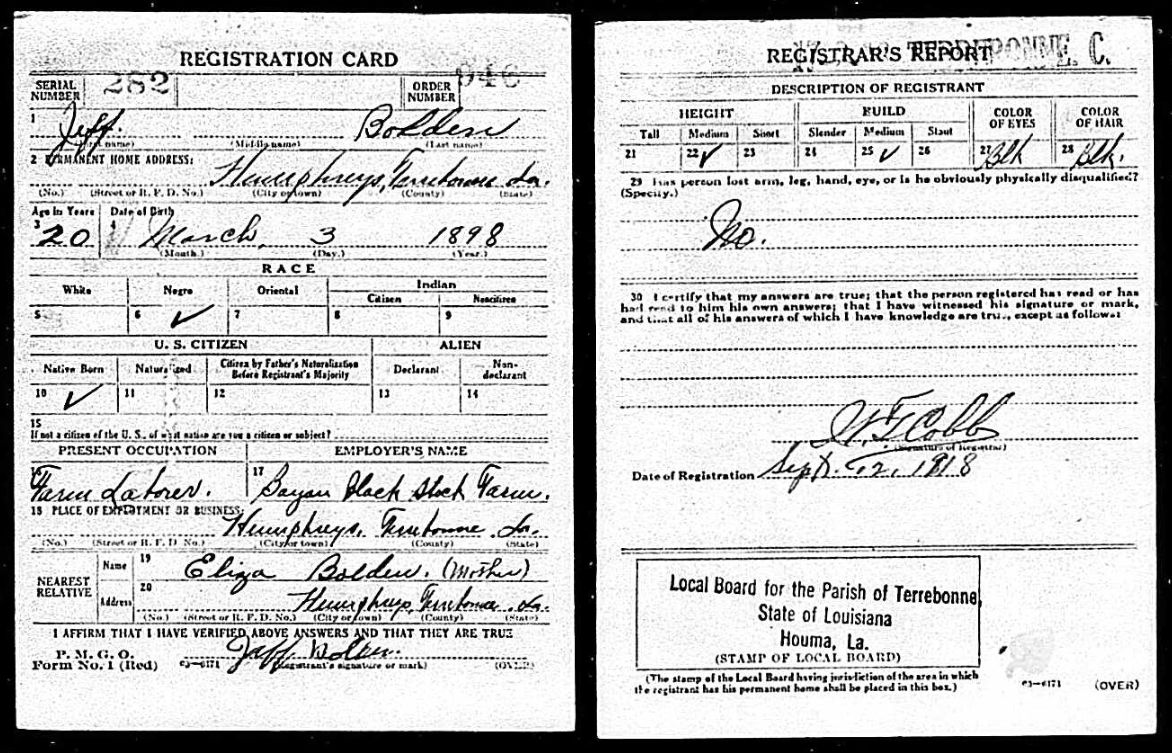 REGISTRATION CARD
SERIAL NUMBER 282 ORDER NUMBER 946
1 Jeff. Bolden
(First name) (Middle name) (Last name)
2 PERMANENT HOME ADDRESS:
Humphreys, Terrebonne La.
(No.) (Street or R. F. D. No.) (City or town) (County) (State)
Age in Years Date of Birth
3 20 4 March, 3 1898
(Month.) (Day.) (Year.)
RACE
White Negro Oriental Indian
Citizen Noncitizen
5 6 ✓ 7 8 9
U. S. CITIZEN ALIEN
Native Born Naturalized Citizen by Father's Naturalization Before Registrant's Majority Declarant Non-declarant
10 ✓ 11 12 13 14
15
If not a citizen of the U. S., of what nation are you a citizen or subject?
PRESENT OCCUPATION EMPLOYER'S NAME
16 Farm Laborer. 17 Bayou Black Stock Farm.
18 PLACE OF EMPLOYMENT OR BUSINESS:
Humphreys, Terrebonne La.
(No.) (Street or R. F. D. No.) (City or town) (County) (State)
NEAREST RELATIVE
Name 19 Eliza Bolden. (Mother)
Address 20 Humphreys, Terrebonne La.
(No.) (Street or R. F. D. No.) (City or town) (County) (State)
I AFFIRM THAT I HAVE VERIFIED ABOVE ANSWERS AND THAT THEY ARE TRUE
P. M. G. O.
Form No. 1 (Red) 03—6171 Jeff (Registrant's signature or mark) (OVER)
REGISTRAR'S REPORT TERREBONNE, C.
DESCRIPTION OF REGISTRANT
HEIGHT BUILD COLOR OF EYES COLOR OF HAIR
Tall Medium Short Slender Medium Stout
21 22 ✓ 23 24 25 ✓ 26 27 Blk 28 Blk.
29 Has person lost arm, leg, hand, eye, or is he obviously physically disqualified?
(Specify.)
No.
30 I certify that my answers are true; that the person registered has read or has
had read to him his own answers; that I have witnessed his signature or mark,
and that all of his answers of which I have knowledge are true, except as follows:
Cobb
(Signature of Registrar)
Date of Registration Sept. 12, 1918
Local Board for the Parish of Terrebonne,
State of Louisiana
Houma, La.
(STAMP OF LOCAL BOARD)
(The stamp of the Local Board having jurisdiction of the area in which
the registrant has his permanent home shall be placed in this box.)
03—6171 (OVER)